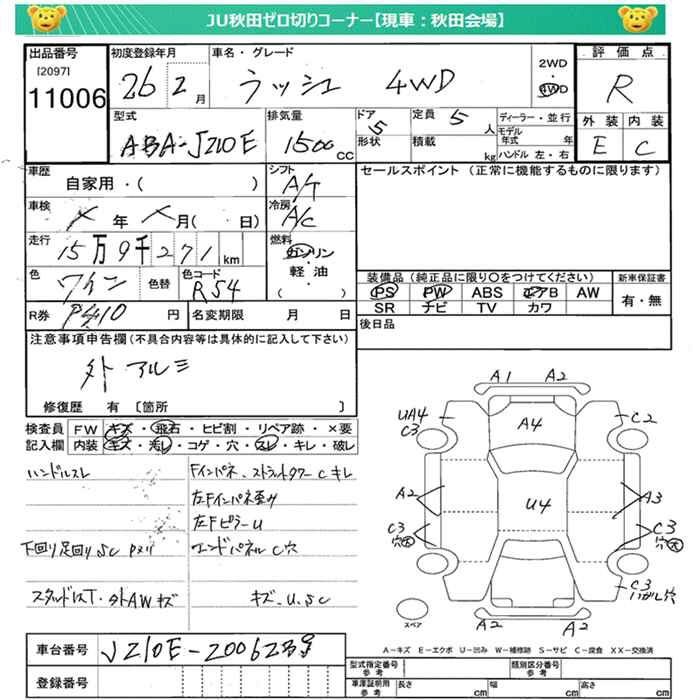 JU秋田ゼロ切りコーナー【現車：秋田会場】
出品番号
[2097]
11006
初度登録年月
26 2 月
車名・グレード
ラッシュ 4WD
2WD
・
4WD
評価点
R
外装 内装
E C
型式
ABA-J210E
排気量
1500 CC
ドア
5
形状
定員 5 人
積載 kg
ディーラー・並行
モデル年式 年
ハンドル 左・右
車歴
自家用・( )
車検
年 月( 日)
走行
15万9千271 km
色
ワイン
色替
色コード
R54
シフト
A/T
冷房
A/C
燃料
ガソリン
軽・油
( )
R券 円
名変期限 月 日
セールスポイント（正常に機能するものに限ります）
装備品（純正品に限り○をつけてください）
PS PW ABS エアB AW
SR ナビ TV カワ
新車保証書
有・無
後日品
注意事項申告欄（不具合内容等は具体的に記入して下さい）
外 アルミ
修復歴 有 〔箇所 〕
検査員記入欄
FW キズ・飛石・ヒビ割・リペア跡・×要
内装 キズ・汚レ・コゲ・穴・スレ・キレ・破レ
ハンドルスレ
Fインパネ、ストラットタワーCキレ
左Fインパネ歪み
左FピラーU
下回り足回りSC
エンドパネルC穴
スタッドレスT・外AWキズ
キズ、U、SC
A1 A2
UA4
C3
A4
C2
A2
U4
A3
C3
穴大
C3
穴大
C3
A2 A2
スペア
A－キズ E－エクボ U－凹み W－補修跡 S－サビ C－腐食 XX－交換済
車台番号
J210E-2006239
登録番号
型式指定番号
参考
類別区分番号
参考
車庫証明用
参考
長さ cm 幅 cm 高さ cm